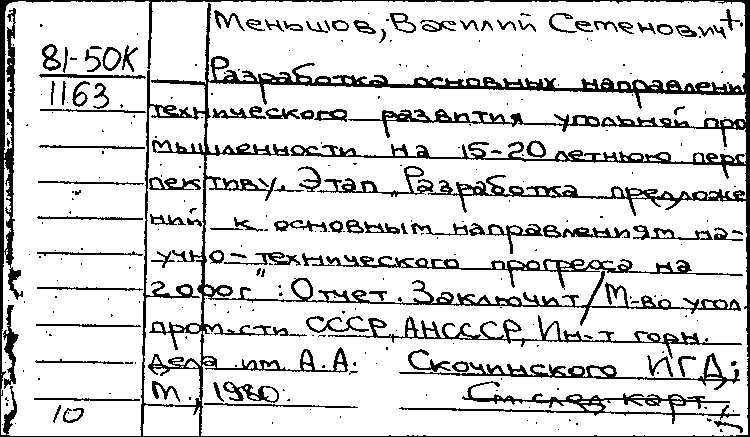 Меньшов, Василий Семенович +
81-50К
Разработка основных направлени
1163
технического развития угольной про
мышленности на 15-20 летнюю перс
пективу. Этап „Разработка предложе
ний к основным направлениям на-
учно-технического прогресса на
2000г": Отчет. Заключит / М-во угол
пром-сти СССР, АНСССР, Ин-т горн.
дела им А.А. Скочинского ИГД;
М., 1980.
См. след. карт.
10